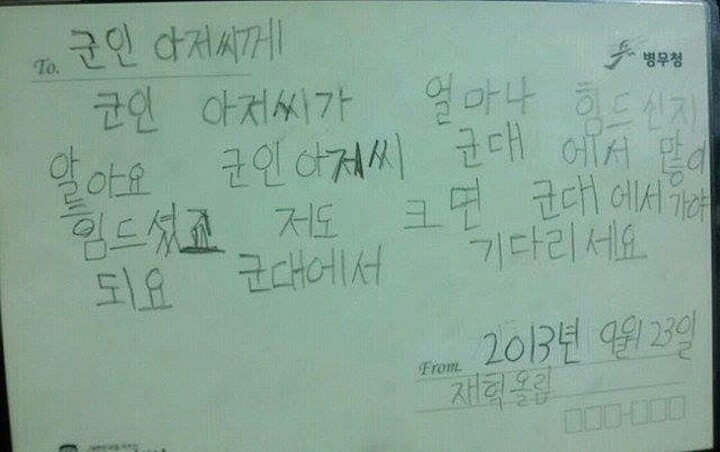 To. 군인 아저씨께
병무청
군인 아저씨가 얼마나 힘드신지
알아요 군인아저씨 군대 에서 많이
힘드셨죠 저도 크면 군대에서 가야
되요 군대에서 기다리세요
From. 2013년 9월 23일
재혁올림